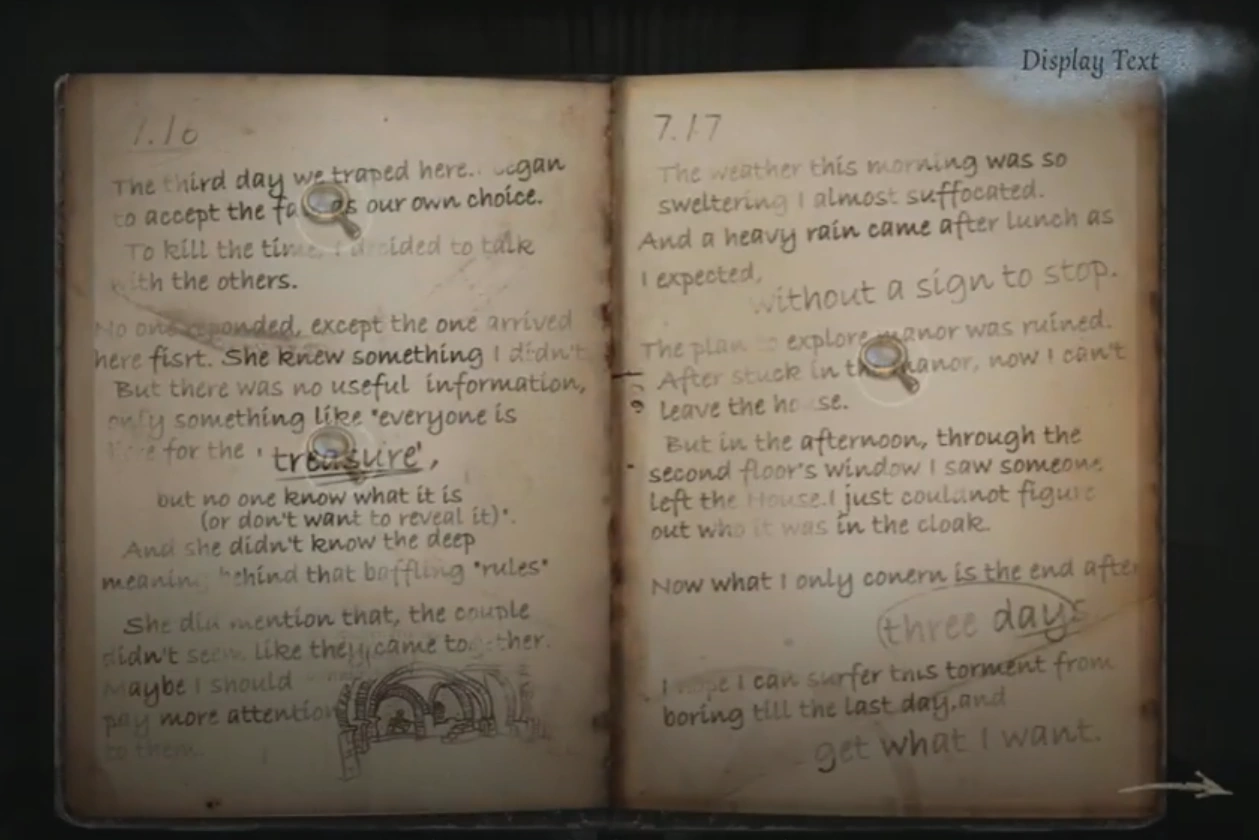 Display Text
7.16
The third day we traped here.. began
to accept the fa as our own choice.
To kill the time, I decided to talk
with the others.
No one reponded, except the one arrived
here fisrt. She knew something I didn't.
But there was no useful information,
only something like "everyone is
here for the 'treasure',
but no one know what it is
(or don't want to reveal it)".
And she didn't know the deep
meaning behind that baffling "rules"
She did mention that, the couple
didn't seem like they came together.
Maybe I should
pay more attention
to them.
7.17
The weather this morning was so
sweltering I almost suffocated.
And a heavy rain came after lunch as
I expected,
without a sign to stop.
The plan to explore manor was ruined.
After stuck in the manor, now I can't
leave the house.
But in the afternoon, through the
second floor's window I saw someone
left the House.I just couldnot figure
out who it was in the cloak.
Now what I only conern is the end after
three days
I hope I can surfer this torment from
boring till the last day,and
get what I want.